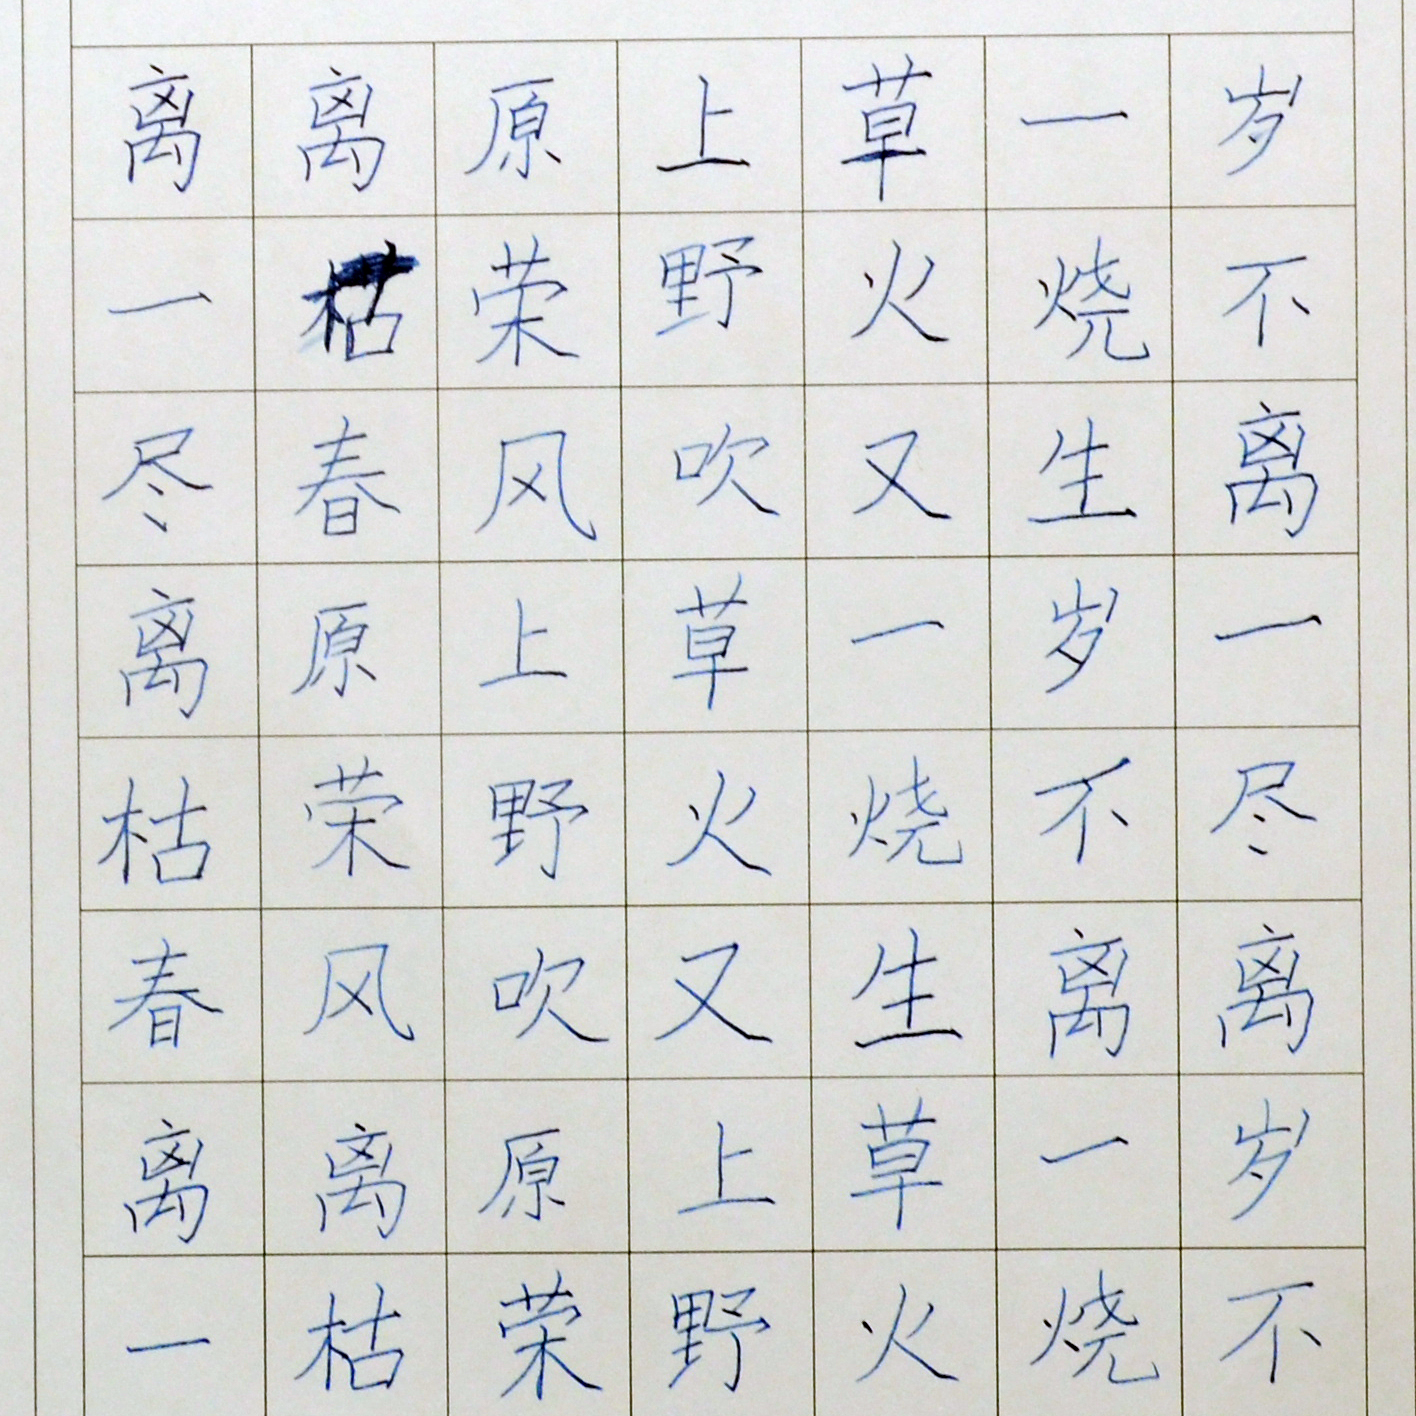 离离原上草一岁
一枯荣野火烧不
尽春风吹又生离
离原上草一岁一
枯荣野火烧不尽
春风吹又生离离
离离原上草一岁
一枯荣野火烧不